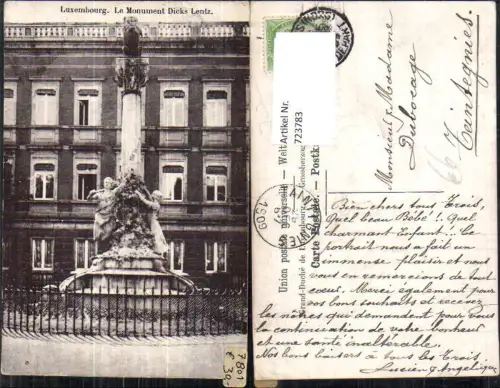 Luxembourg. Le Monument Dicks Lentz.
7801
€ 30
WeltArtikel Nr.
723783
1909
Union postale universelle. — Weltpostverein.
Grand-Duché de Luxembourg. — Grossherzog
Carte Postale. — Postk
Monsieur & Madame
Dubocage
Taintegnies.
Bien chers tous Trois,
Quel beau Bébé! Quel
charmant Enfant!.. Ce
portrait nous a fait un
immense plaisir et nous
vous en remercions de tout
cœur. Merci également pour
vos bons souhaits et recevez
les nôtres qui demandent pour vous
la continuation de votre bonheur
et une santé inaltérable.
Nos bons baisers à tous les Trois.
Lucien & Angélique